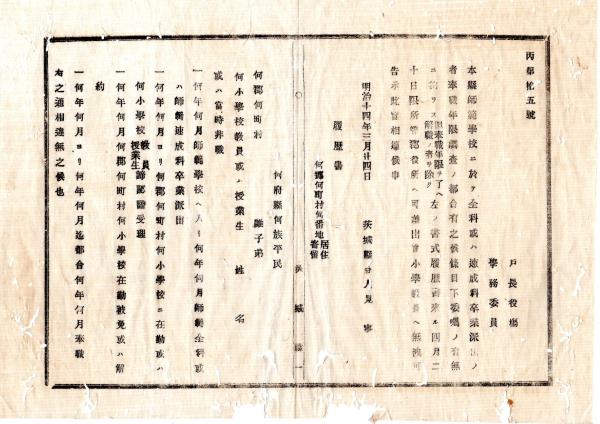 丙第拾五號
戸長役塲
學務委員
本縣師範學校ニ於テ全科或ハ速成科卒業派出ノ
者奉職年限調査ノ都合有之候條目下委囑ノ有無
ニ拘ラス但奉職年限ヲ了ヘ解職ノ者ヲ除ク左ノ書式履歴書來ル四月二
十日限所管郡役所ヘ可差出旨小學教員ヘ無洩可
告示此旨相達候事
明治十四年三月廿四日 茨城縣令人見寧
履歴書
何郡何町村何番地居住寄留
何府縣何族平民
何郡何町村 誰子弟
何小學校教員或ハ授業生 姓名
或ハ當時非職
一何年何月師範學校ヘ入リ何年何月師範全科或
ハ師範速成科卒業派出
一何年何月ヨリ何郡何町村何小學校ニ在勤或ハ
何小學校教員授業生諦認證受理
一何年何月何郡何町村何小學校在勤被免或ハ解
約
一何年何月ヨリ何年何月迄都合何年何月奉職
右之通相違無之候也
茨城縣